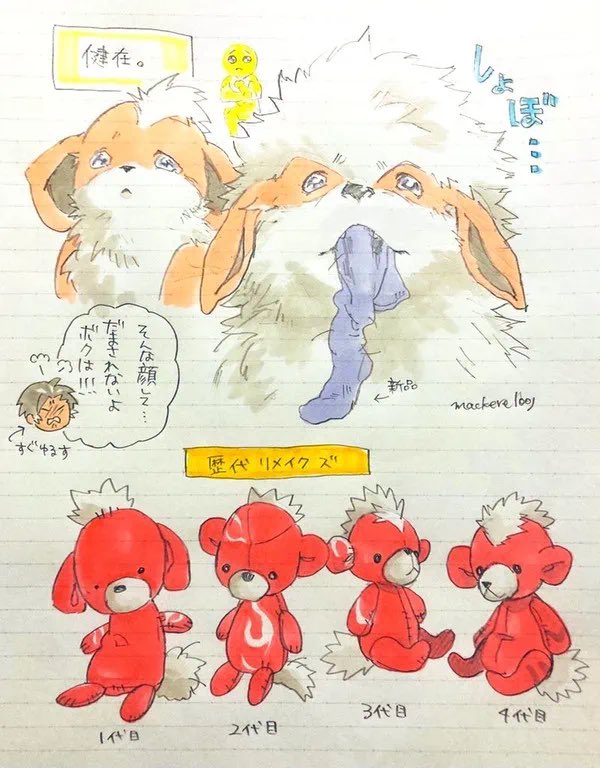 健在。
しょぼ…
そんな顔して…
だまされないよ
ボクは!!!
すぐゆるす
新品
mackerelboy
歴代リメイクズ
1代目
2代目
3代目
4代目